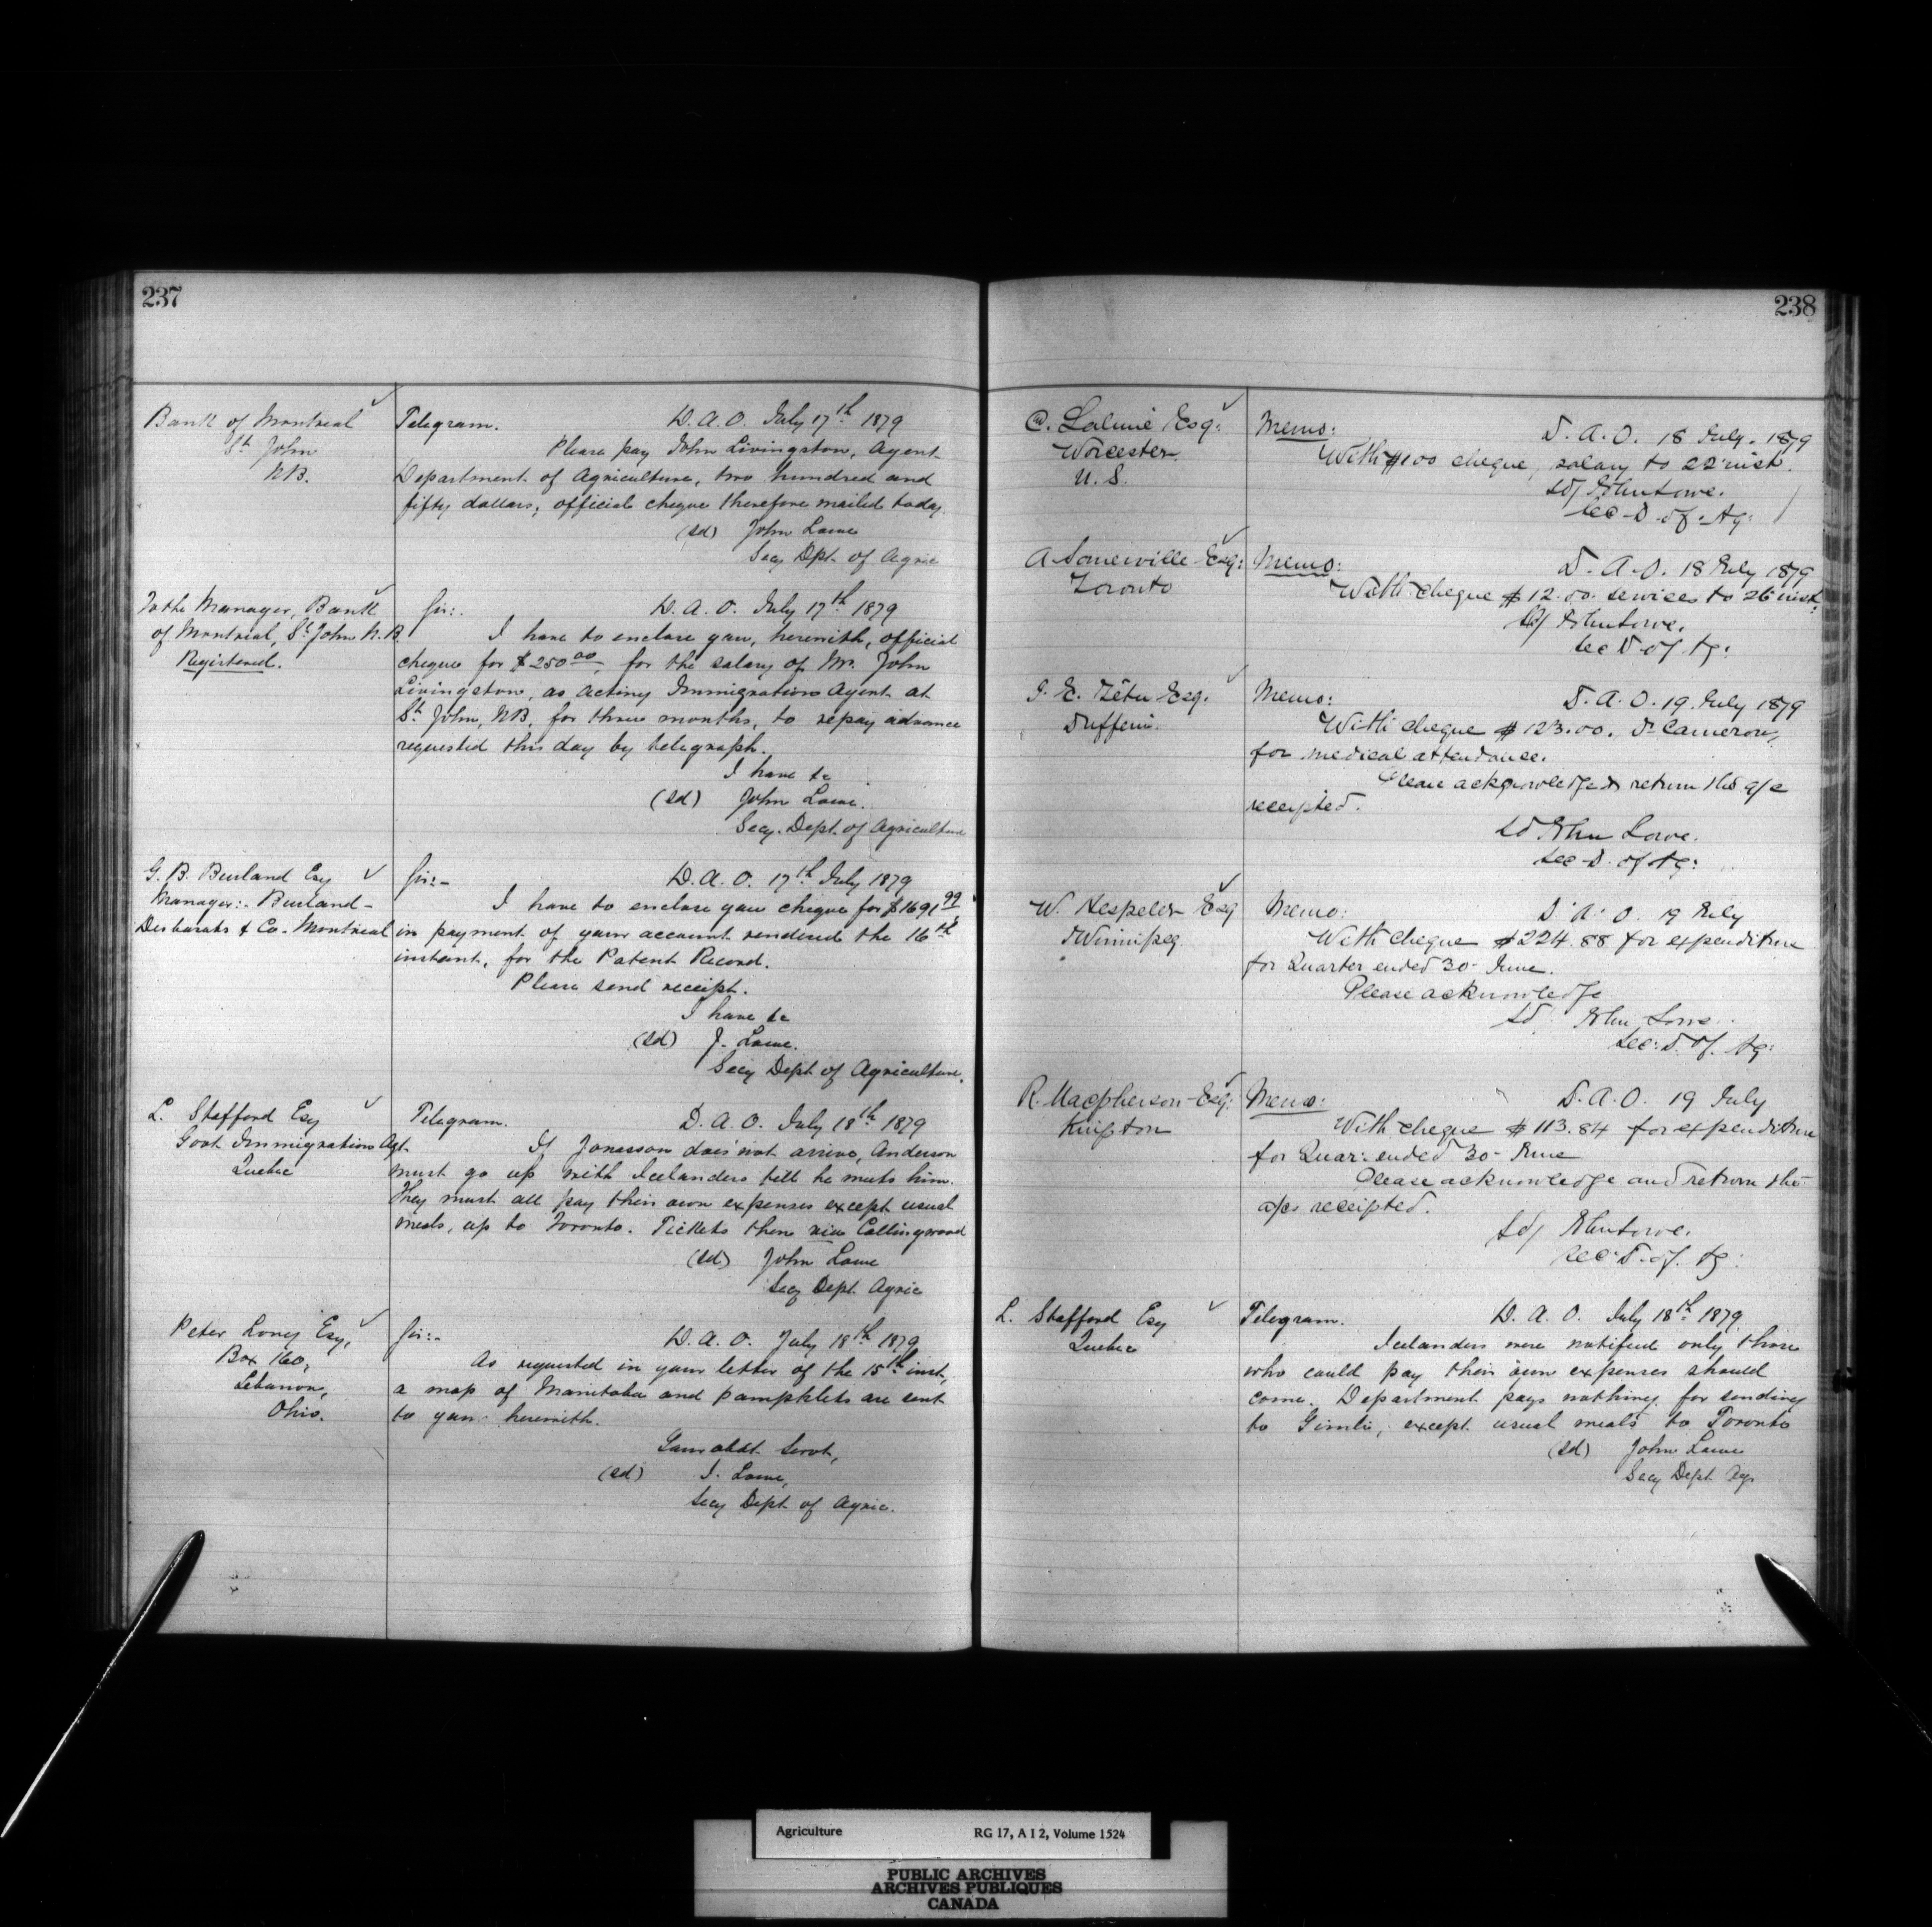 237
Bank of Montreal
St. John
NB.
Telegram. D. A. O. July 17th 1879
Please pay John Livingston, Agent
Department of Agriculture, two hundred and
fifty dollars; official cheque therefore mailed today.
(sd) John Lowe
Secy Dpt. of Agric
To the Manager, Bank
of Montreal, St. John N.B
Registered.
Sir:. D. A. O. July 17th 1879
I have to enclose you, herewith, official
cheque for $250 00, for the salary of Mr. John
Livingston, as Acting Immigration Agent at
St. John, NB, for three months, to repay advance
requested this day by telegraph.
I have &c
(sd) John Lowe.
Secy. Dept. of Agriculture
G. B. Burland Esq
Manager:. Burland-
Desbarats & Co. Montreal
Sir:- D. A. O. 17th July 1879
I have to enclose you cheque for $1691 99
in payment of your account rendered the 16th
instant, for the Patent Record.
Please send receipt.
I have &c
(sd) J. Lowe.
Secy Dept of Agriculture.
L. Stafford Esq
Govt Immigration Agt.
Quebec
Telegram. D. A. O. July 18th 1879
If Jonasson does not arrive, Anderson
must go up with Icelanders till he meets him.
They must all pay their own expenses except usual
meals, up to Toronto. Tickets then via Collingwood
(sd) John Lowe
Secy Dept. Agric
Peter Loney Esq,
Box 160,
Lebanon,
Ohio.
Sir:- D. A. O. July 18th 1879
As requested in your letter of the 15th inst,
a map of Manitoba and pamphlets are sent
to you herewith.
Your obdt. Servt,
(sd) J. Lowe,
Secy Dept of Agric.
238
C. Lalime Esq:
Worcester
U. S.
Memo: D. A. O. 18 July. 1879
With $100 cheque, salary to 22 inst.
Sd/ John Lowe.
Sec D. of Ag:
A Somerville Esq:
Toronto
Memo: D. A. O. 18 July 1879
With cheque $12.00. services to 26 inst:
Sd/ John Lowe.
Sec D of Ag:
J. E. Têtu Esq.
Dufferin.
Memo: D. A. O. 19. July 1879
With cheque $123.00. Dr Cameron,
for medical attendance.
Please acknowledge & return the a/c
receipted.
Sd John Lowe.
Sec D. of Ag:
W. Hespeler Esq
Winnipeg.
Memo: D. A. O. 19 July
With cheque $224.88 for expenditure
for Quarter ended 30 June.
Please acknowledge
Sd John Lowe.
Sec: D. of. Ag:
R. Macpherson Esq:
Kingston
Memo: D. A. O. 19 July
With cheque $113.84 for expenditure
for Quar: ended 30 June
Please acknowledge and return the
a/cs receipted.
Sd/ John Lowe.
Sec: D. of. Ag:
L. Stafford Esq
Quebec
Telegram. D. A. O. July 18th 1879.
Icelanders were notified only those
who could pay their own expenses should
come. Department pays nothing for sending
to Gimli, except usual meals to Toronto
(sd) John Lowe
Secy Dept Agr
Agriculture RG 17, A I 2, Volume 1524
PUBLIC ARCHIVES
ARCHIVES PUBLIQUES
CANADA